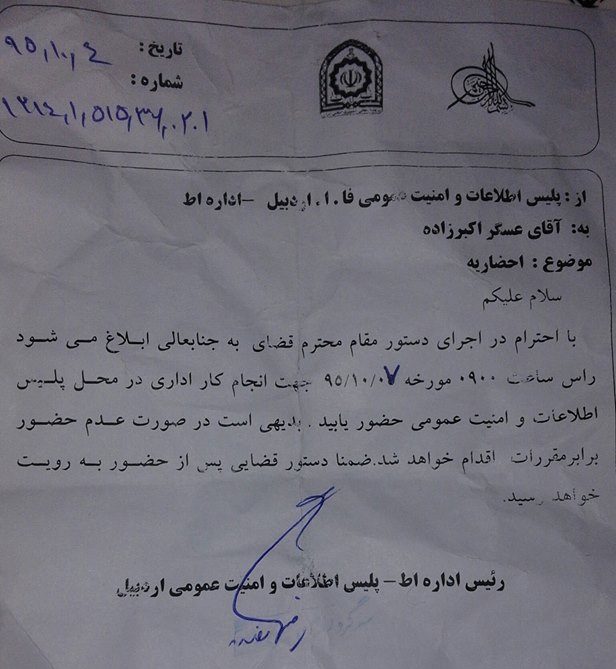 تاریخ : ۹۵,۱۰, ٤
شماره :
از : پلیس اطلاعات و امنیت عمومی فا . ا . اردبیل - اداره اط
به: آقای عسگر اکبرزاده
موضوع : احضاریه
سلام علیکم
با احترام در اجرای دستور مقام محترم قضای به جنابعالی ابلاغ می شود
راس ساعت ۰۹۰۰ مورخه ۹۵/۱۰/۰۷ جهت انجام کار اداری در محل پلیس
اطلاعات و امنیت عمومی حضور یابید . بدیهی است در صورت عدم حضور
برابرمقررات اقدام خواهد شد.ضمنا دستور قضایی پس از حضور به رویت
خواهد رسید.
رئیس اداره اط – پلیس اطلاعات و امنیت عمومی اردبیل